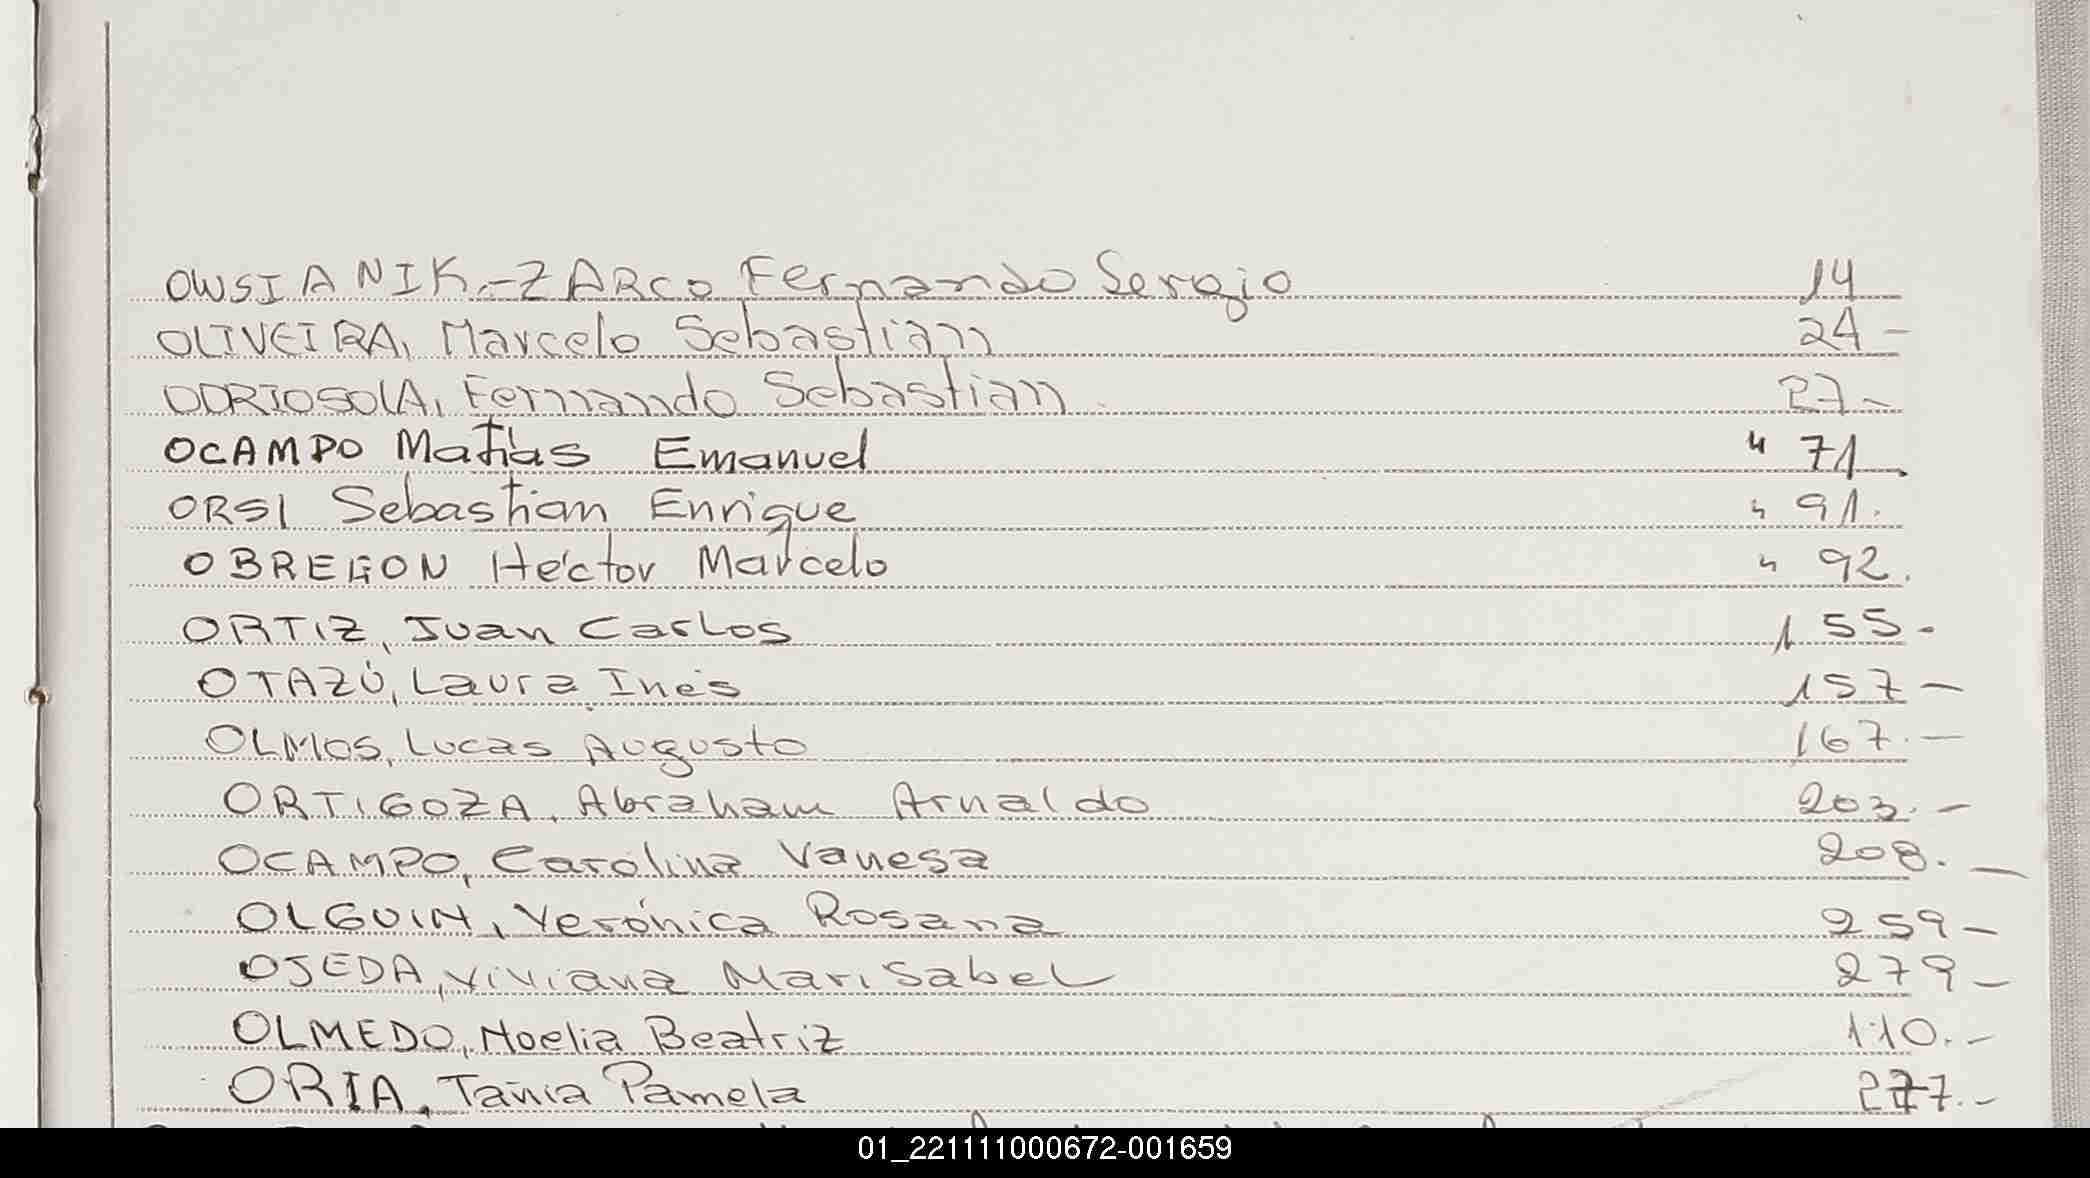 OWSIANIK.-ZARCO Fernando Sergio 14
OLIVEIRA, Marcelo Sebastian 24 -
ODRIOSOLA, Fernando Sebastian. 27.-
OCAMPO Matías Emanuel " 71
ORSI Sebastian Enrique " 91.
OBREGON Héctor Marcelo " 92.
ORTIZ, Juan Carlos 155-
OTAZÚ, Laura Inés 157-
OLMOS, Lucas Augusto 167.-
ORTIGOZA, Abraham Arnaldo 203.-
OCAMPO, Carolina Vanesa 208.-
OLGUIN, Verónica Rosana 259-
OJEDA, Viviana Marisabel 279-
OLMEDO, Noelia Beatriz 110.-
ORIA, Tania Pamela 277.-
01_221111000672-001659